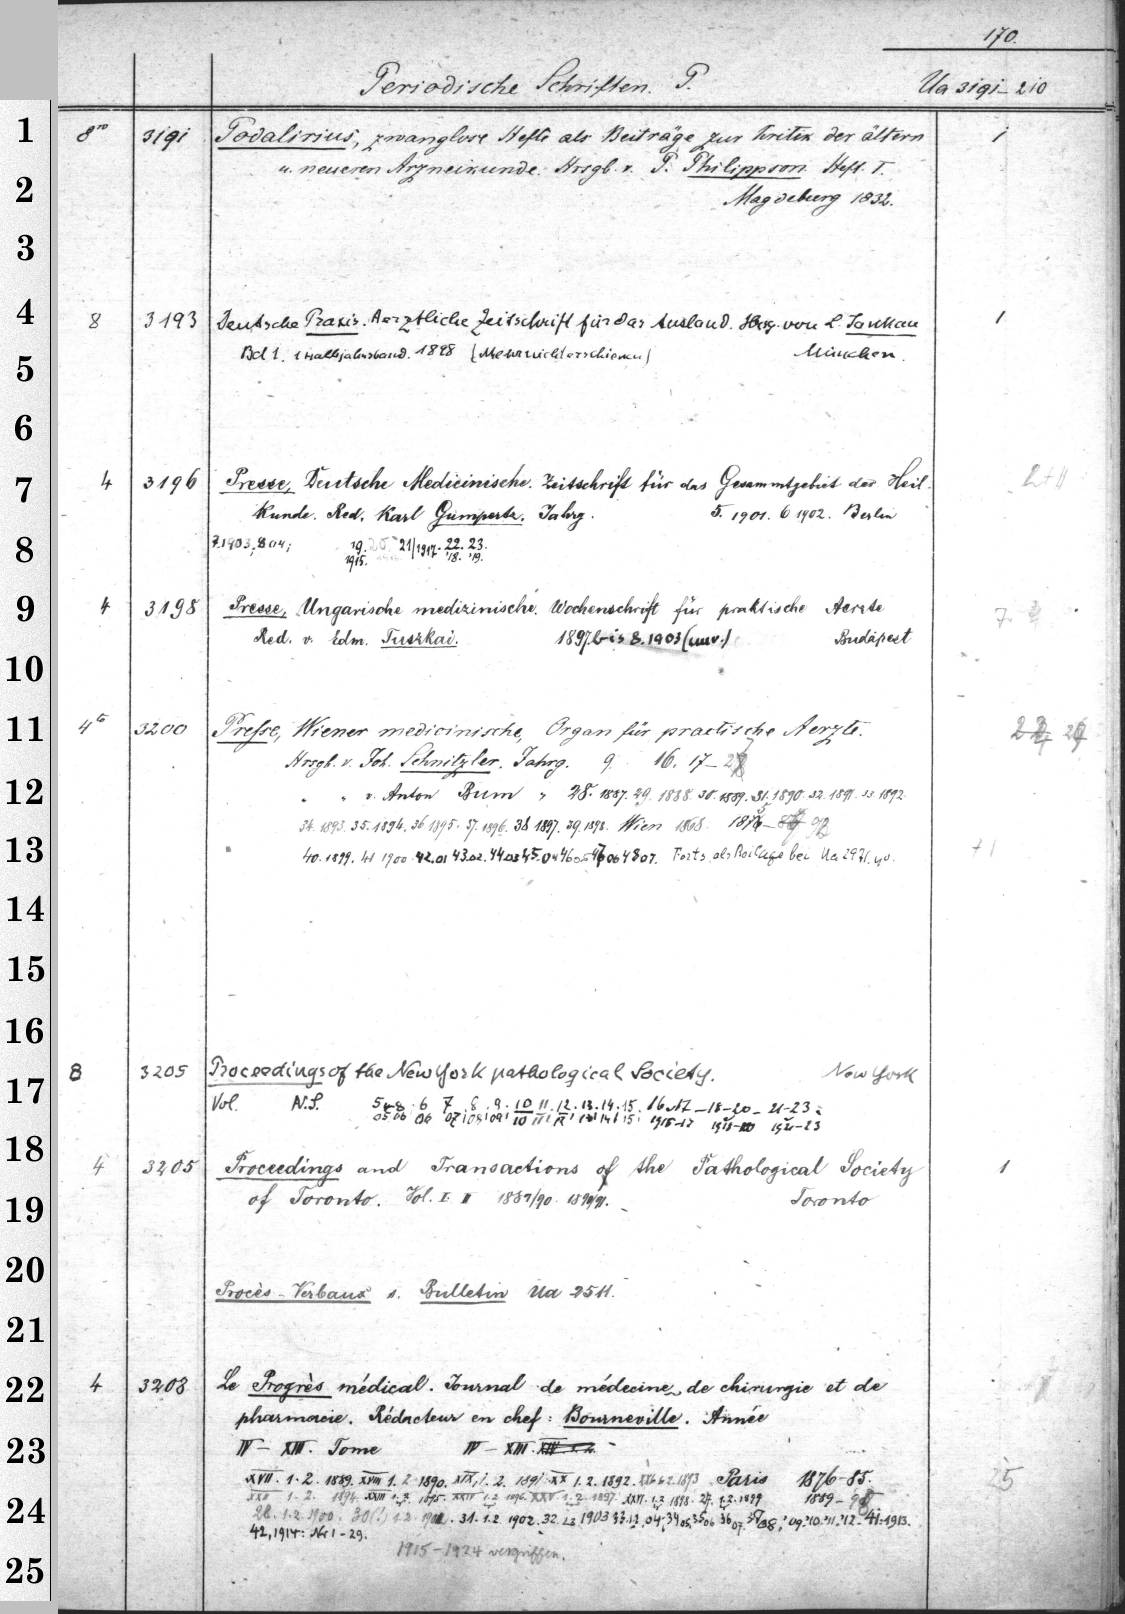 170.
Periodische Schriften. P. Ua 3191-210
1
8vo 3191 Podalirius, zwanglose Hefte als Beiträge zur Kritik der ältern 1
u. neueren Arzneikunde. Hrsgb. v. P. Philippson. Heft. I.
2
Magdeburg 1832.
3
4
8 3193 Deutsche Praxis. Aerztliche Zeitschrift für das Ausland. Hrsg. von L. Jankau 1
Bd 1. 1 Halbjahrsband. 1898 (Mehr nicht erschienen) München.
5
6
7
4 3196 Presse, Deutsche Medicinische. Zeitschrift für das Gesammtgebiet der Heil-
kunde. Red. Karl Gumpertz. Jahrg. 5. 1901. 6 1902. Berlin
8
7.1903, 8 04; 19. 21/1917. 22. 23.
1915. '18. '19.
9
4 3198 Presse, Ungarische medizinische. Wochenschrift für praktische Aerzte
Red. v. Edm. Tuszkai. 1897. bis 8. 1903 (unv.) Budapest
10
11
4to 3200 Presse, Wiener medicinische, Organ für practische Aerzte.
Hrsgb. v. Joh. Schnitzler. Jahrg. 9. 16. 17-27
12
" " v. Anton Bum " 28. 1887. 29. 1888. 30. 1889. 31. 1890. 32. 1891. 33 1892.
34. 1893. 35. 1894. 36 1895. 37. 1896. 38 1897. 39. 1898. Wien 1868.
13
40. 1899. 41 1900. 42.01 43.02. 44.03 45.04 46 05 47 06 48 07. Forts. als Beilage bei Ua 2971. 40.
14
15
16
17
8 3205 Proceedings of the New York pathological Society. New York
Vol. N.S. 5 6 7 8. 9. 10 11. 12. 13. 14. 15. 16 17 - 18-20 - 21-23
05 06 06 07 08 09 10 11 12 13 14 15 1915-17 1918-20 1921-23
18
4 3205 Proceedings and Transactions of the Pathological Society 1
of Toronto. Vol. I. II 1889/90. 1890/91. Toronto
19
20
Procès-Verbaux s. Bulletin Ua 2511.
21
22
4 3208 Le Progrès médical. Journal de médecine, de chirurgie et de
pharmacie. Rédacteur en chef: Bourneville. Année
23
IV - XIII. Tome IV - XIII.
XVII. 1. 2. 1889. XVIII 1. 2 1890. XIX, 1. 2. 1891 XX 1. 2. 1892. 1893 Paris 1876-85.
XXI 1. 2. 1894. XXIII 1. 2. 1895. XXIV 1.2 1896. XXV 1. 2 1897. XXVI. 1.2 1898. 27. 1.2. 1899 1889-
24
28. 1.2. 1900. 30(!) 1.2. 31. 1.2. 1902. 32. 1903 33. 04. 34 05. 35 06 36 07. 08. '09. '10. '11. '12. 41. 1913.
42, 1914: Nr 1-29.
1915-1924 vergriffen.
25